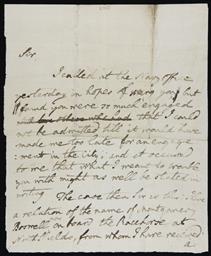 Sir
I called at the Navy office
yesterday in hopes of seeing you but
found you were so much engaged
that I could
not be admitted till it would have
made me too late for an engage
ment in the City, and it occurred
to me that what I meant to
you with might as well be stated in
writing
The case then Sir is this: I have
a relation of the name of
Boswell on board the Racehorse at
from whom I have received
a